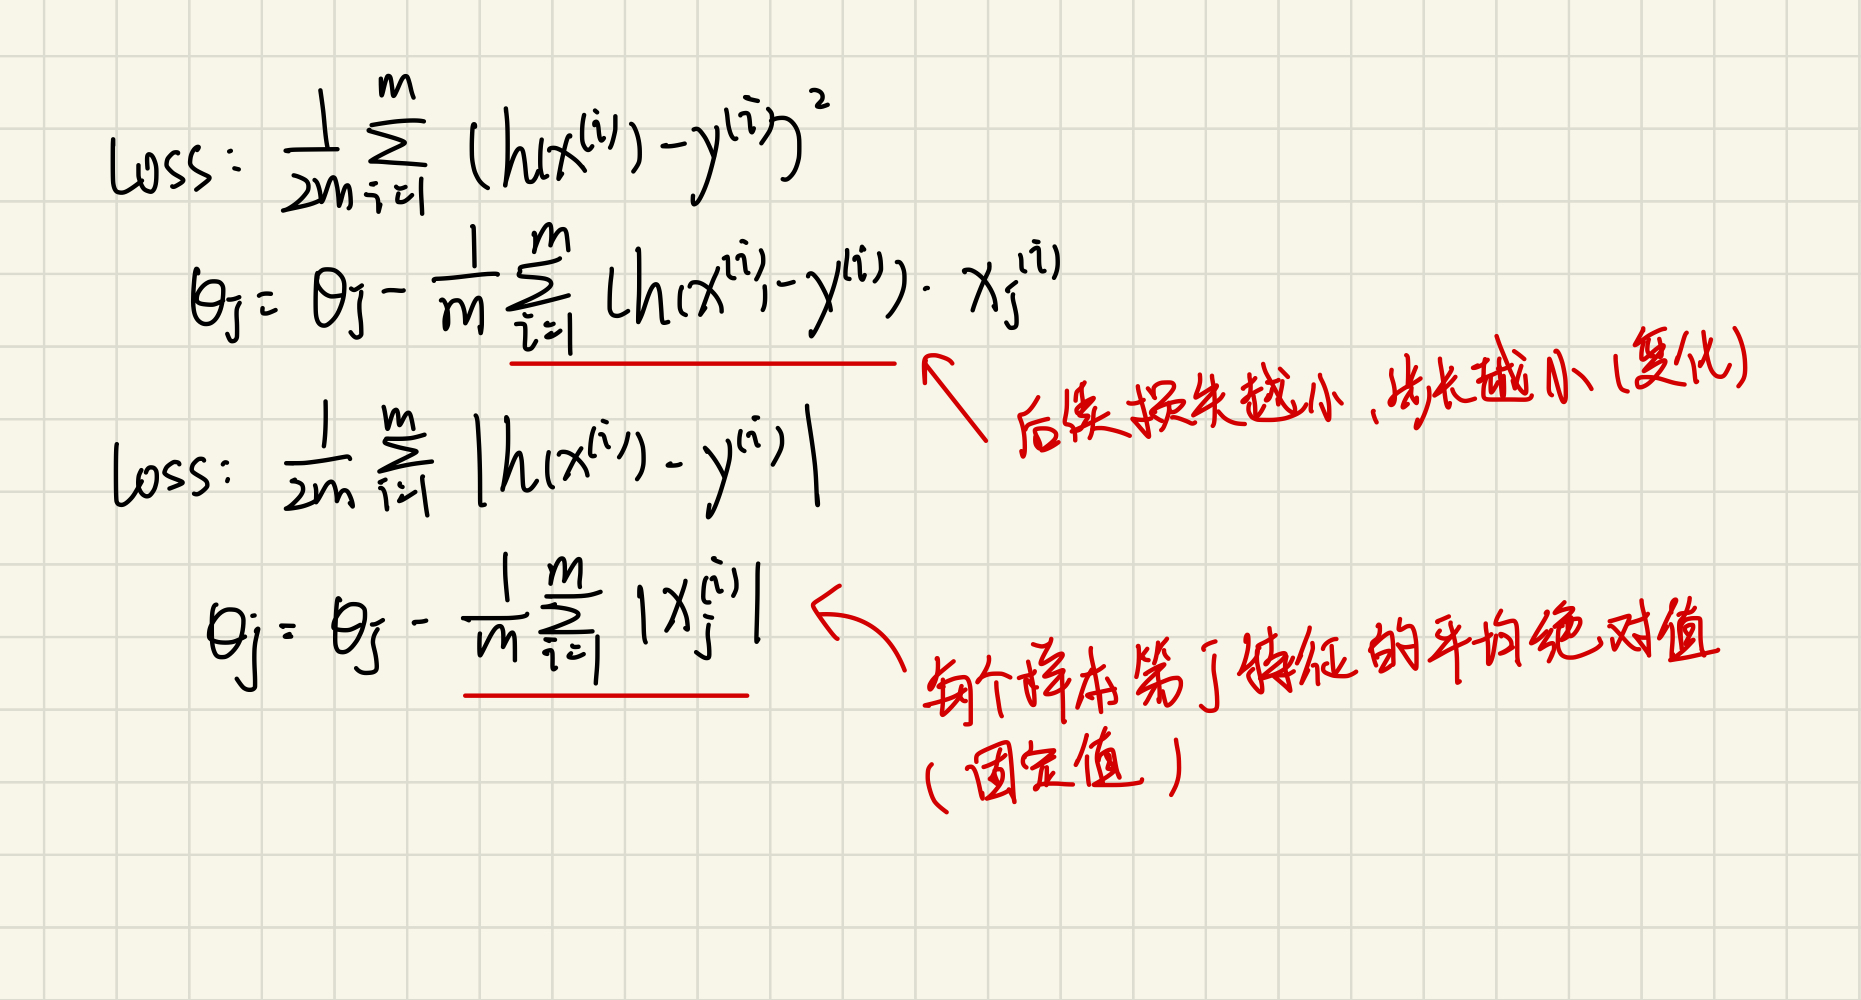 Loss: \frac{1}{2m} \sum_{i=1}^{m} (h(x^{(i)}) - y^{(i)})^2
θ_j = θ_j - \frac{1}{m} \sum_{i=1}^{m} (h(x^{(i)}) - y^{(i)}) · x_j^{(i)}
后续损失越小,步长越小(变化)
Loss: \frac{1}{2m} \sum_{i=1}^{m} |h(x^{(i)}) - y^{(i)}|
θ_j = θ_j - \frac{1}{m} \sum_{i=1}^{m} |x_j^{(i)}|
每个样本第j特征的平均绝对值
(固定值)